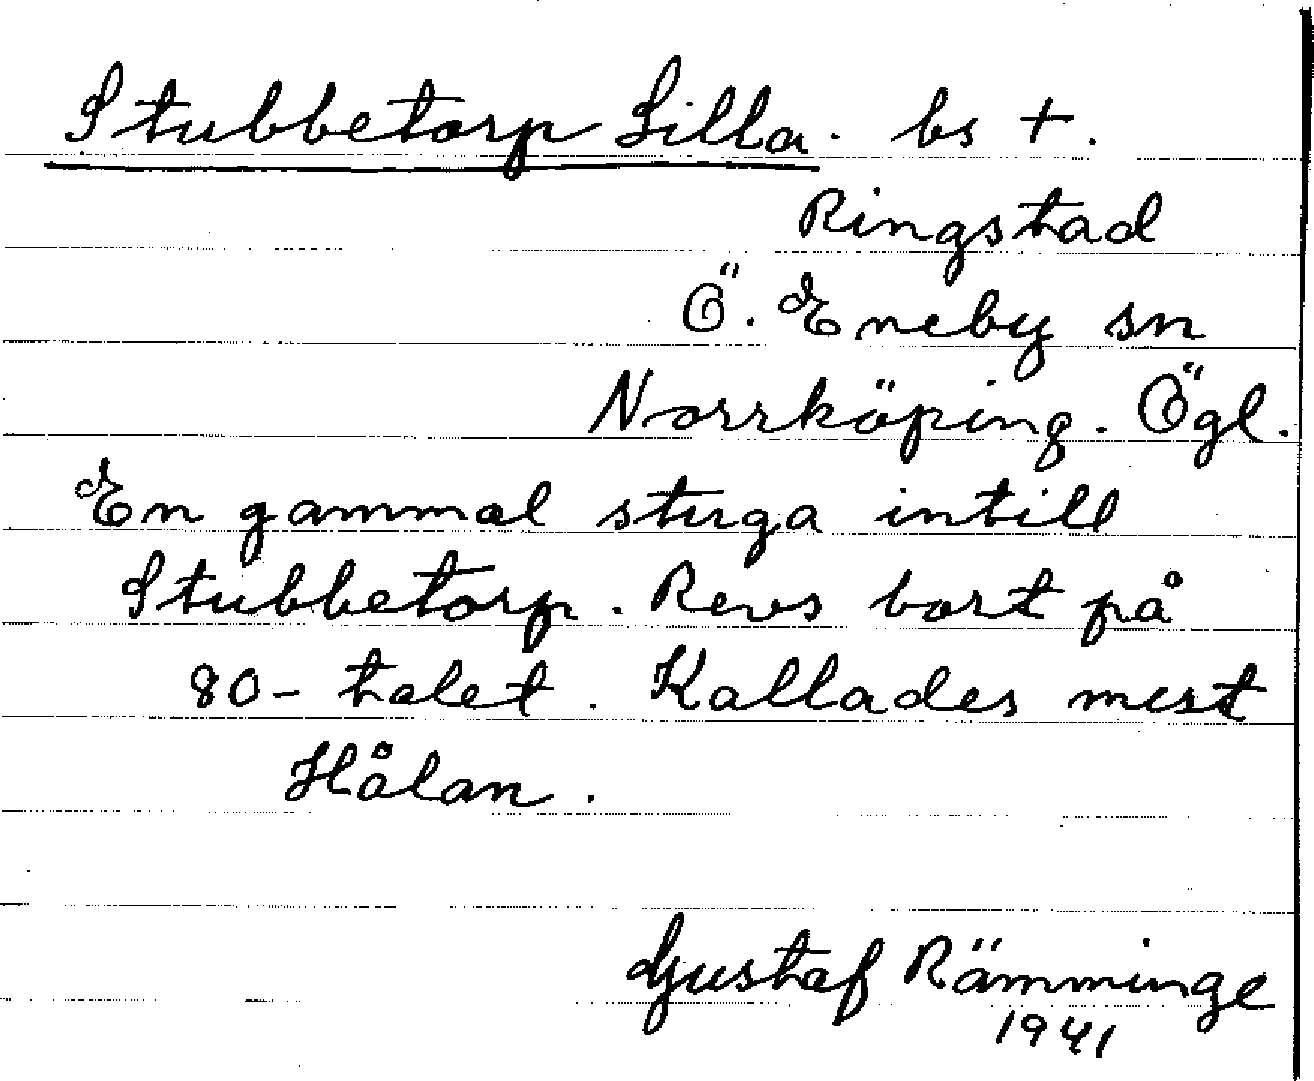 Stubbetorp Lilla. bs +.
Ringstad
Ö. Eneby sn
Norrköping. Ögl.
En gammal stuga intill
Stubbetorp. Revs bort på
80-talet. Kallades mest
Hålan.
Gustaf Rämminge
1941